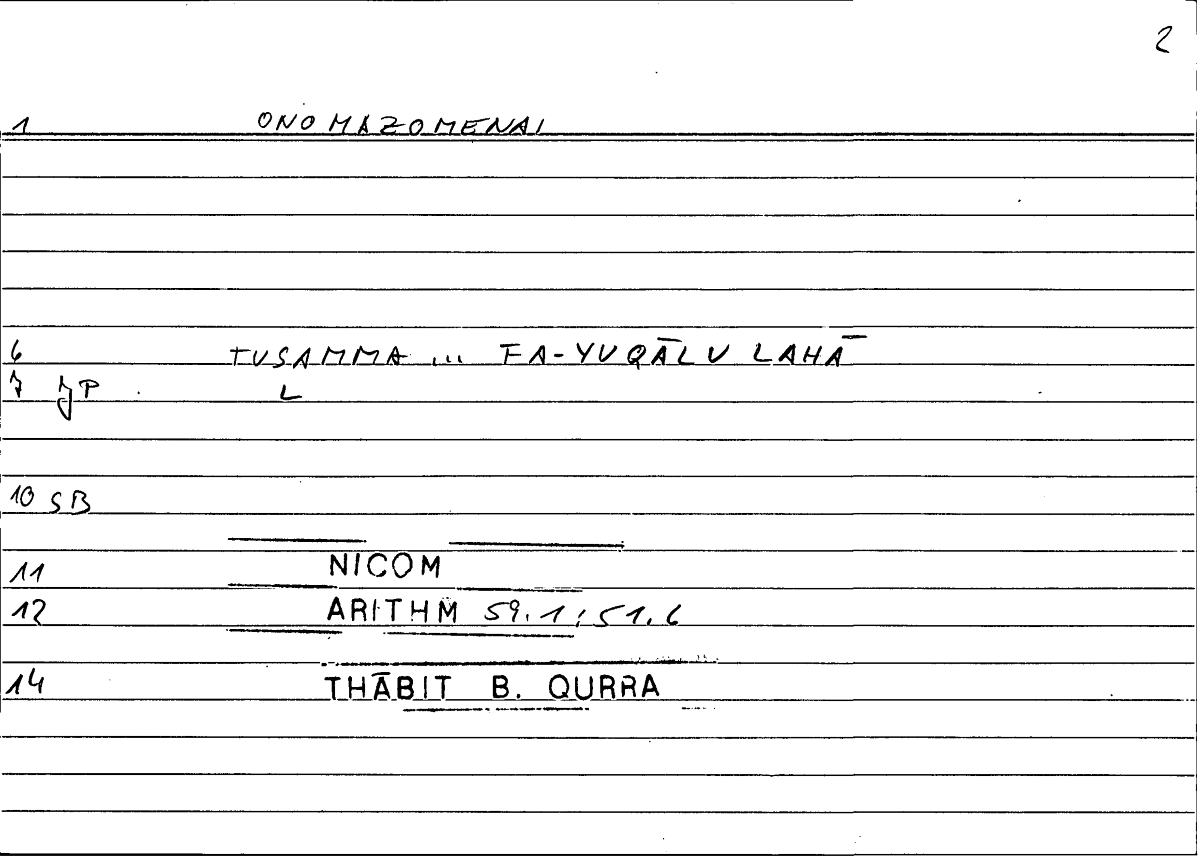 2
1 ONOMAZOMENAI
6 TUSAMMA ... FA-YUQĀLU LAHĀ
7 JP L
10 SB
11 NICOM
12 ARITHM 59.1; 51.6
14 THĀBIT B. QURRA